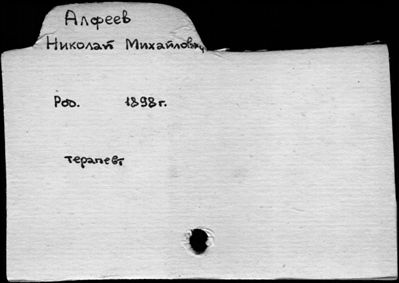 Алфеев
Николай Михайлович
Род. 1898 г.
терапевт